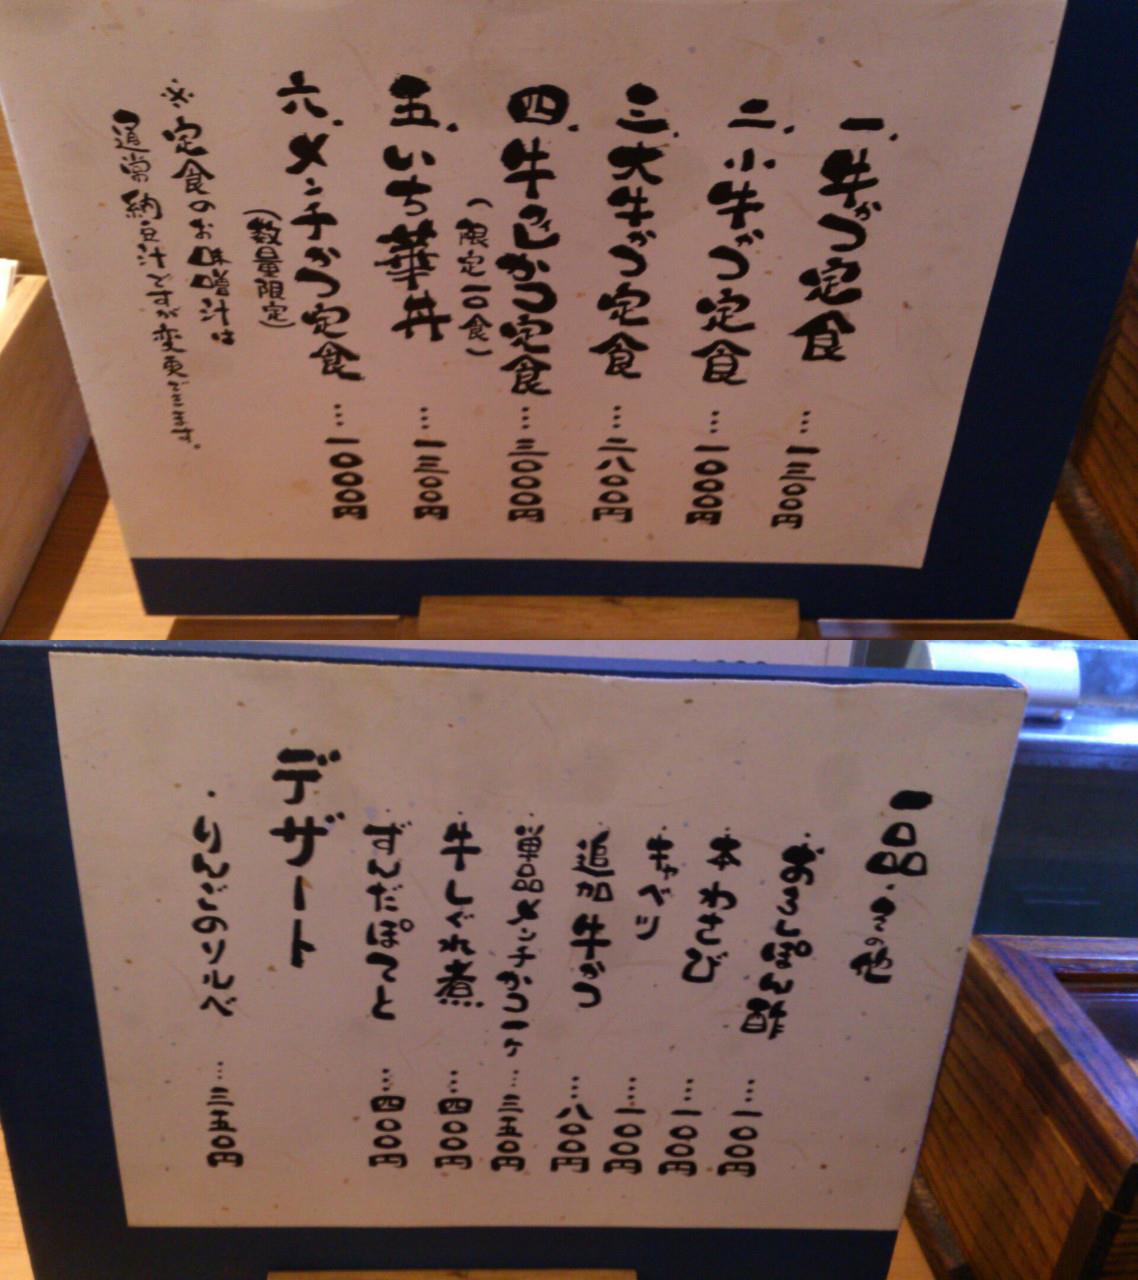 一、牛かつ定食…一三〇〇円
二、小牛かつ定食…一〇〇〇円
三、大牛かつ定食…二八〇〇円
四、牛ヒレかつ定食…三〇〇〇円
(限定一〇食)
五、いち華丼…一三〇〇円
六、メンチかつ定食…一〇〇〇円
(数量限定)
※定食のお味噌汁は
通常納豆汁ですが変更できます。
一品・その他
・おろしぽん酢…一〇〇円
・本わさび…一〇〇円
・キャベツ…一〇〇円
・追加牛かつ…八〇〇円
・単品メンチかつ一ヶ…三五〇円
・牛しぐれ煮…四〇〇円
・ずんだぽてと…四〇〇円
デザート
・りんごのソルベ…三五〇円